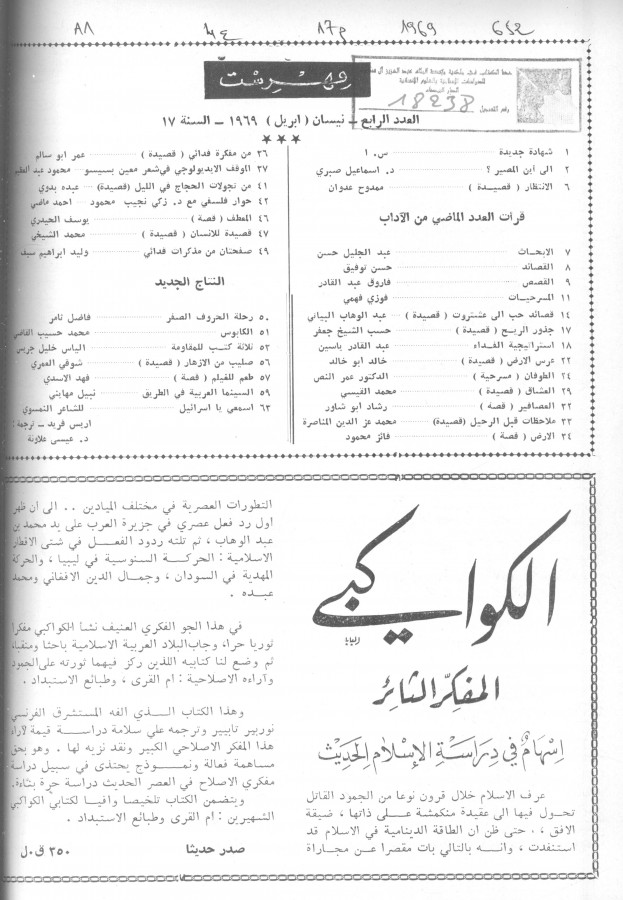 ٨٨ ٤٤ 17p 1969 642
هذا الكتاب في ملكية مؤسسة الملك عبد العزيز آل سعود
للدراسات الإسلامية والعلوم الإنسانية
الدار البيضاء
رقم التسجيل 18238
فهرست
العدد الرابع - نيسان ( ابريل ) ١٩٦٩ - السنة ١٧
١ شهادة جديدة س . ا
٢ الى اين المصير ؟ د. اسماعيل صبري
٦ الانتظار ( قصيدة ) ممدوح عدوان
قرأت العدد الماضي من الآداب
٧ الابحاث عبد الجليل حسن
٨ القصائد حسن توفيق
٩ القصص فاروق عبد القادر
١١ المسرحيات فوزي فهمي
١٤ قصائد حب الى عشتروت ( قصيدة ) عبد الوهاب البياتي
١٧ جذور الريح ( قصيدة ) حسب الشيخ جعفر
١٨ استراتيجية الغداء عبد القادر ياسين
٢٢ عرس الارض ( قصيدة ) خالد ابو خالد
٢٤ الطوفان ( مسرحية ) الدكتور عمر النص
٢٩ العشاق ( قصيدة ) محمد القيسي
٣٢ العصافير ( قصة ) رشاد ابو شاور
٣٣ ملاحظات قبل الرحيل (قصيدة) محمد عز الدين المناصرة
٣٤ الارض ( قصة ) فائز محمود
٣٦ من مفكرة فدائي ( قصيدة ) عمر ابو سالم
٣٧ الموقف الايديولوجي في شعر معين بسيسو محمود عبد العظيم
٤١ من تجولات الحجاج في الليل (قصيدة) عبده بدوي
٤٢ حوار فلسفي مع د. زكي نجيب محمود احمد ماضي
٤٦ المعطف ( قصة ) يوسف الحيدري
٤٧ قصيدة للانسان ( قصيدة ) محمد الشيخي
٤٩ صفحتان من مذكرات فدائي وليد ابراهيم سيف
النتاج الجديد
٥٠ رحلة الحروف الصفر فاضل ثامر
٥١ الكابوس محمد حسيب القاضي
٥٣ ثلاثة كتب للمقاومة الياس خليل جريس
٥٦ صليب من الازهار ( قصيدة ) شوقي العمري
٥٧ طعم للفيلم ( قصة ) فهد الاسدي
٥٩ السينما العربية في الطريق نبيل مهايني
٦٣ اسمعي يا اسرائيل للشاعر النمسوي
اريس فريد - ترجمة :
د. عيسى علاونة
الكواكبي
المفكر الثائر
إسهام في دراسة الإسلام الحديث
عرف الاسلام خلال قرون نوعا من الجمود القاتل
تحول فيها الى عقيدة منكمشة على ذاتها ، ضيقة
الافق ، حتى ظن ان الطاقة الدينامية في الاسلام قد
استنفدت ، وانه بالتالي بات مقصرا عن مجاراة
التطورات العصرية في مختلف الميادين .. الى أن ظهر
اول رد فعل عصري في جزيرة العرب على يد محمد بن
عبد الوهاب ، ثم تلته ردود الفعل في شتى الاقطار
الاسلامية : الحركة السنوسية في ليبيا ، والحركة
المهدية في السودان ، وجمال الدين الافغاني ومحمد
عبده .
في هذا الجو الفكري العنيف نشأ الكواكبي مفكرا
ثوريا حرا، وجاب البلاد العربية الاسلامية باحثا ومنقبا،
ثم وضع لنا كتابيه اللذين ركز فيهما ثورته على الجمود
وآراءه الاصلاحية : ام القرى ، وطبائع الاستبداد .
وهذا الكتاب الذي الفه المستشرق الفرنسي
نوربير تابيير وترجمه علي سلامة دراسة قيمة لآراء
هذا المفكر الاصلاحي الكبير ونقد نزيه لها . وهو بحق
مساهمة فعالة ونموذج يحتذى في سبيل دراسة
مفكري الاصلاح في العصر الحديث دراسة حرة بناءة.
ويتضمن الكتاب تلخيصا وافيا لكتابي الكواكبي
الشهيرين : ام القرى وطبائع الاستبداد .
صدر حديثا ٣٥٠ ق.ل